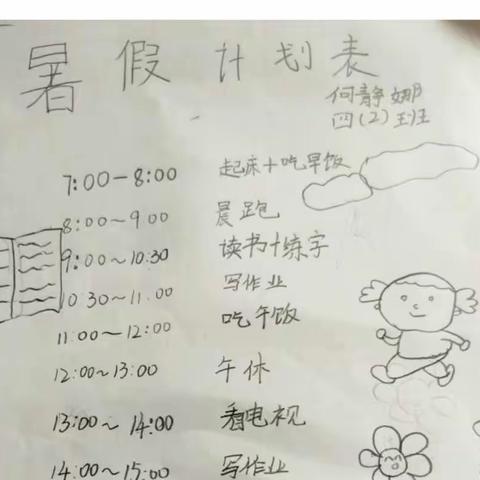 暑假计划表
何静娜
四(2)班
7:00-8:00 起床+吃早饭
8:00~9 00 晨跑
9:00~10:30 读书+练字
10 30~11.00 写作业
11:00~12:00 吃午饭
12:00~13:00 午休
13:00~14:00 看电视
14:00~15:00 写作业